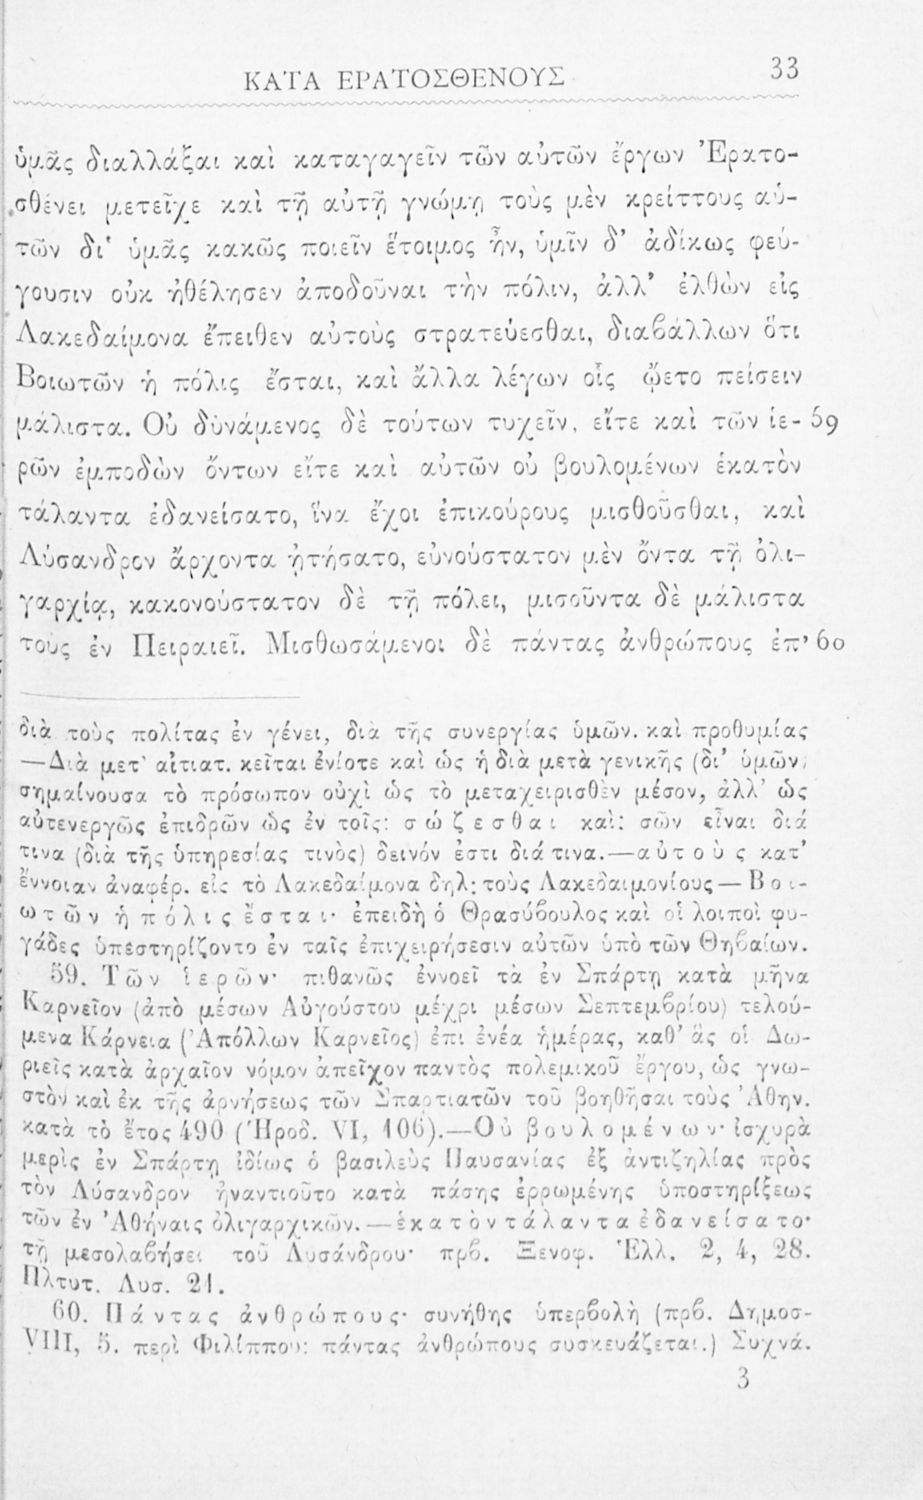 ΚΑΤΑ ΕΡΑΤΟΣΘΕΝΟΥΣ 33
ὑμᾶς διαλλάξαι καὶ καταγαγεῖν τῶν αὐτῶν ἔργων Ἐρατο-
σθένει μετεῖχε καὶ τῇ αὐτῇ γνώμῃ τοὺς μὲν κρείττους αὑ-
τῶν δι' ὑμᾶς κακῶς ποιεῖν ἕτοιμος ἦν, ὑμῖν δ' ἀδίκως φεύ-
γουσιν οὐκ ἠθέλησεν ἀποδοῦναι τὴν πόλιν, ἀλλ' ἐλθὼν εἰς
Λακεδαίμονα ἔπειθεν αὐτοὺς στρατεύεσθαι, διαβάλλων ὅτι
Βοιωτῶν ἡ πόλις ἔσται, καὶ ἄλλα λέγων οἷς ᾤετο πείσειν
μάλιστα. Οὐ δυνάμενος δὲ τούτων τυχεῖν, εἴτε καὶ τῶν ἱε- 59
ρῶν ἐμποδὼν ὄντων εἴτε καὶ αὐτῶν οὐ βουλομένων ἑκατὸν
τάλαντα ἐδανείσατο, ἵνα ἔχοι ἐπικούρους μισθοῦσθαι, καὶ
Λύσανδρον ἄρχοντα ᾐτήσατο, εὐνούστατον μὲν ὄντα τῇ ὀλι-
γαρχίᾳ, κακονούστατον δὲ τῇ πόλει, μισοῦντα δὲ μάλιστα
τοὺς ἐν Πειραιεῖ. Μισθωσάμενοι δὲ πάντας ἀνθρώπους ἐπ' 60
διὰ τοὺς πολίτας ἐν γένει, διὰ τῆς συνεργίας ὑμῶν. καὶ προθυμίας
—Διὰ μετ' αἰτιατ. κεῖται ἐνίοτε καὶ ὡς ἡ διὰ μετὰ γενικῆς (δι' ὑμῶν)
σημαίνουσα τὸ πρόσωπον οὐχὶ ὡς τὸ μεταχειρισθὲν μέσον, ἀλλ' ὡς
αὐτενεργῶς ἐπιδρῶν ὡς ἐν τοῖς: σώζεσθαι καὶ: σῶν εἶναι διά
τινα (διὰ τῆς ὑπηρεσίας τινὸς) δεινόν ἐστι διά τινα.—αὐτοὺς κατ'
ἔννοιαν ἀναφέρ. εἰς τὸ Λακεδαίμονα δηλ: τοὺς Λακεδαιμονίους — Βοι-
ωτῶν ἡ πόλις ἔσται· ἐπειδὴ ὁ Θρασύβουλος καὶ οἱ λοιποὶ φυ-
γάδες ὑπεστηρίζοντο ἐν ταῖς ἐπιχειρήσεσιν αὐτῶν ὑπὸ τῶν Θηβαίων.
59. Τῶν ἱερῶν· πιθανῶς ἐννοεῖ τὰ ἐν Σπάρτῃ κατὰ μῆνα
Καρνεῖον (ἀπὸ μέσων Αὐγούστου μέχρι μέσων Σεπτεμβρίου) τελού-
μενα Κάρνεια (Ἀπόλλων Καρνεῖος) ἐπὶ ἐνέα ἡμέρας, καθ' ἃς οἱ Δω-
ριεῖς κατὰ ἀρχαῖον νόμον ἀπεῖχον παντὸς πολεμικοῦ ἔργου, ὡς γνω-
στὸν καὶ ἐκ τῆς ἀρνήσεως τῶν Σπαρτιατῶν τοῦ βοηθῆσαι τοὺς Ἀθην.
κατὰ τὸ ἔτος 490 (Ἡροδ. VI, 106).—Οὐ βουλομένων· ἰσχυρὰ
μερὶς ἐν Σπάρτῃ ἰδίως ὁ βασιλεὺς Παυσανίας ἐξ ἀντιζηλίας πρὸς
τὸν Λύσανδρον ἠναντιοῦτο κατὰ πάσης ἐρρωμένης ὑποστηρίξεως
τῶν ἐν Ἀθήναις ὀλιγαρχικῶν. — ἑκατὸν τάλαντα ἐδανείσατο·
τῇ μεσολαβήσει τοῦ Λυσάνδρου· πρβ. Ξενοφ. Ἑλλ. 2, 4, 28.
Πλτυτ. Λυσ. 21.
60. Πάντας ἀνθρώπους· συνήθης ὑπερβολὴ (πρβ. Δημοσ-
VIII, 5. περὶ Φιλίππου: πάντας ἀνθρώπους συσκευάζεται.) Συχνά.
3